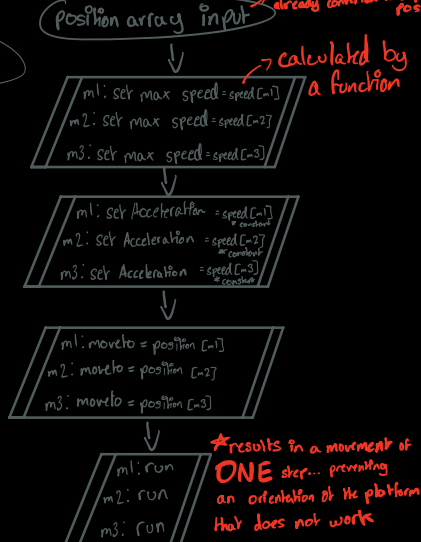 position array input
already
pos
calculated by
a function
m1: set max speed = speed[m1]
m2: set max speed = speed[m2]
m3: set max speed = speed[m3]
m1: set Acceleration = speed[m1]
* constant
m2: set Acceleration = speed[m2]
* constant
m3: set Acceleration = speed[m3]
* constant
m1: moveto = position [m1]
m2: moveto = position [m2]
m3: moveto = position [m3]
m1: run
m2: run
m3: run
*results in a movement of
ONE step... preventing
an orientation of the platform
that does not work